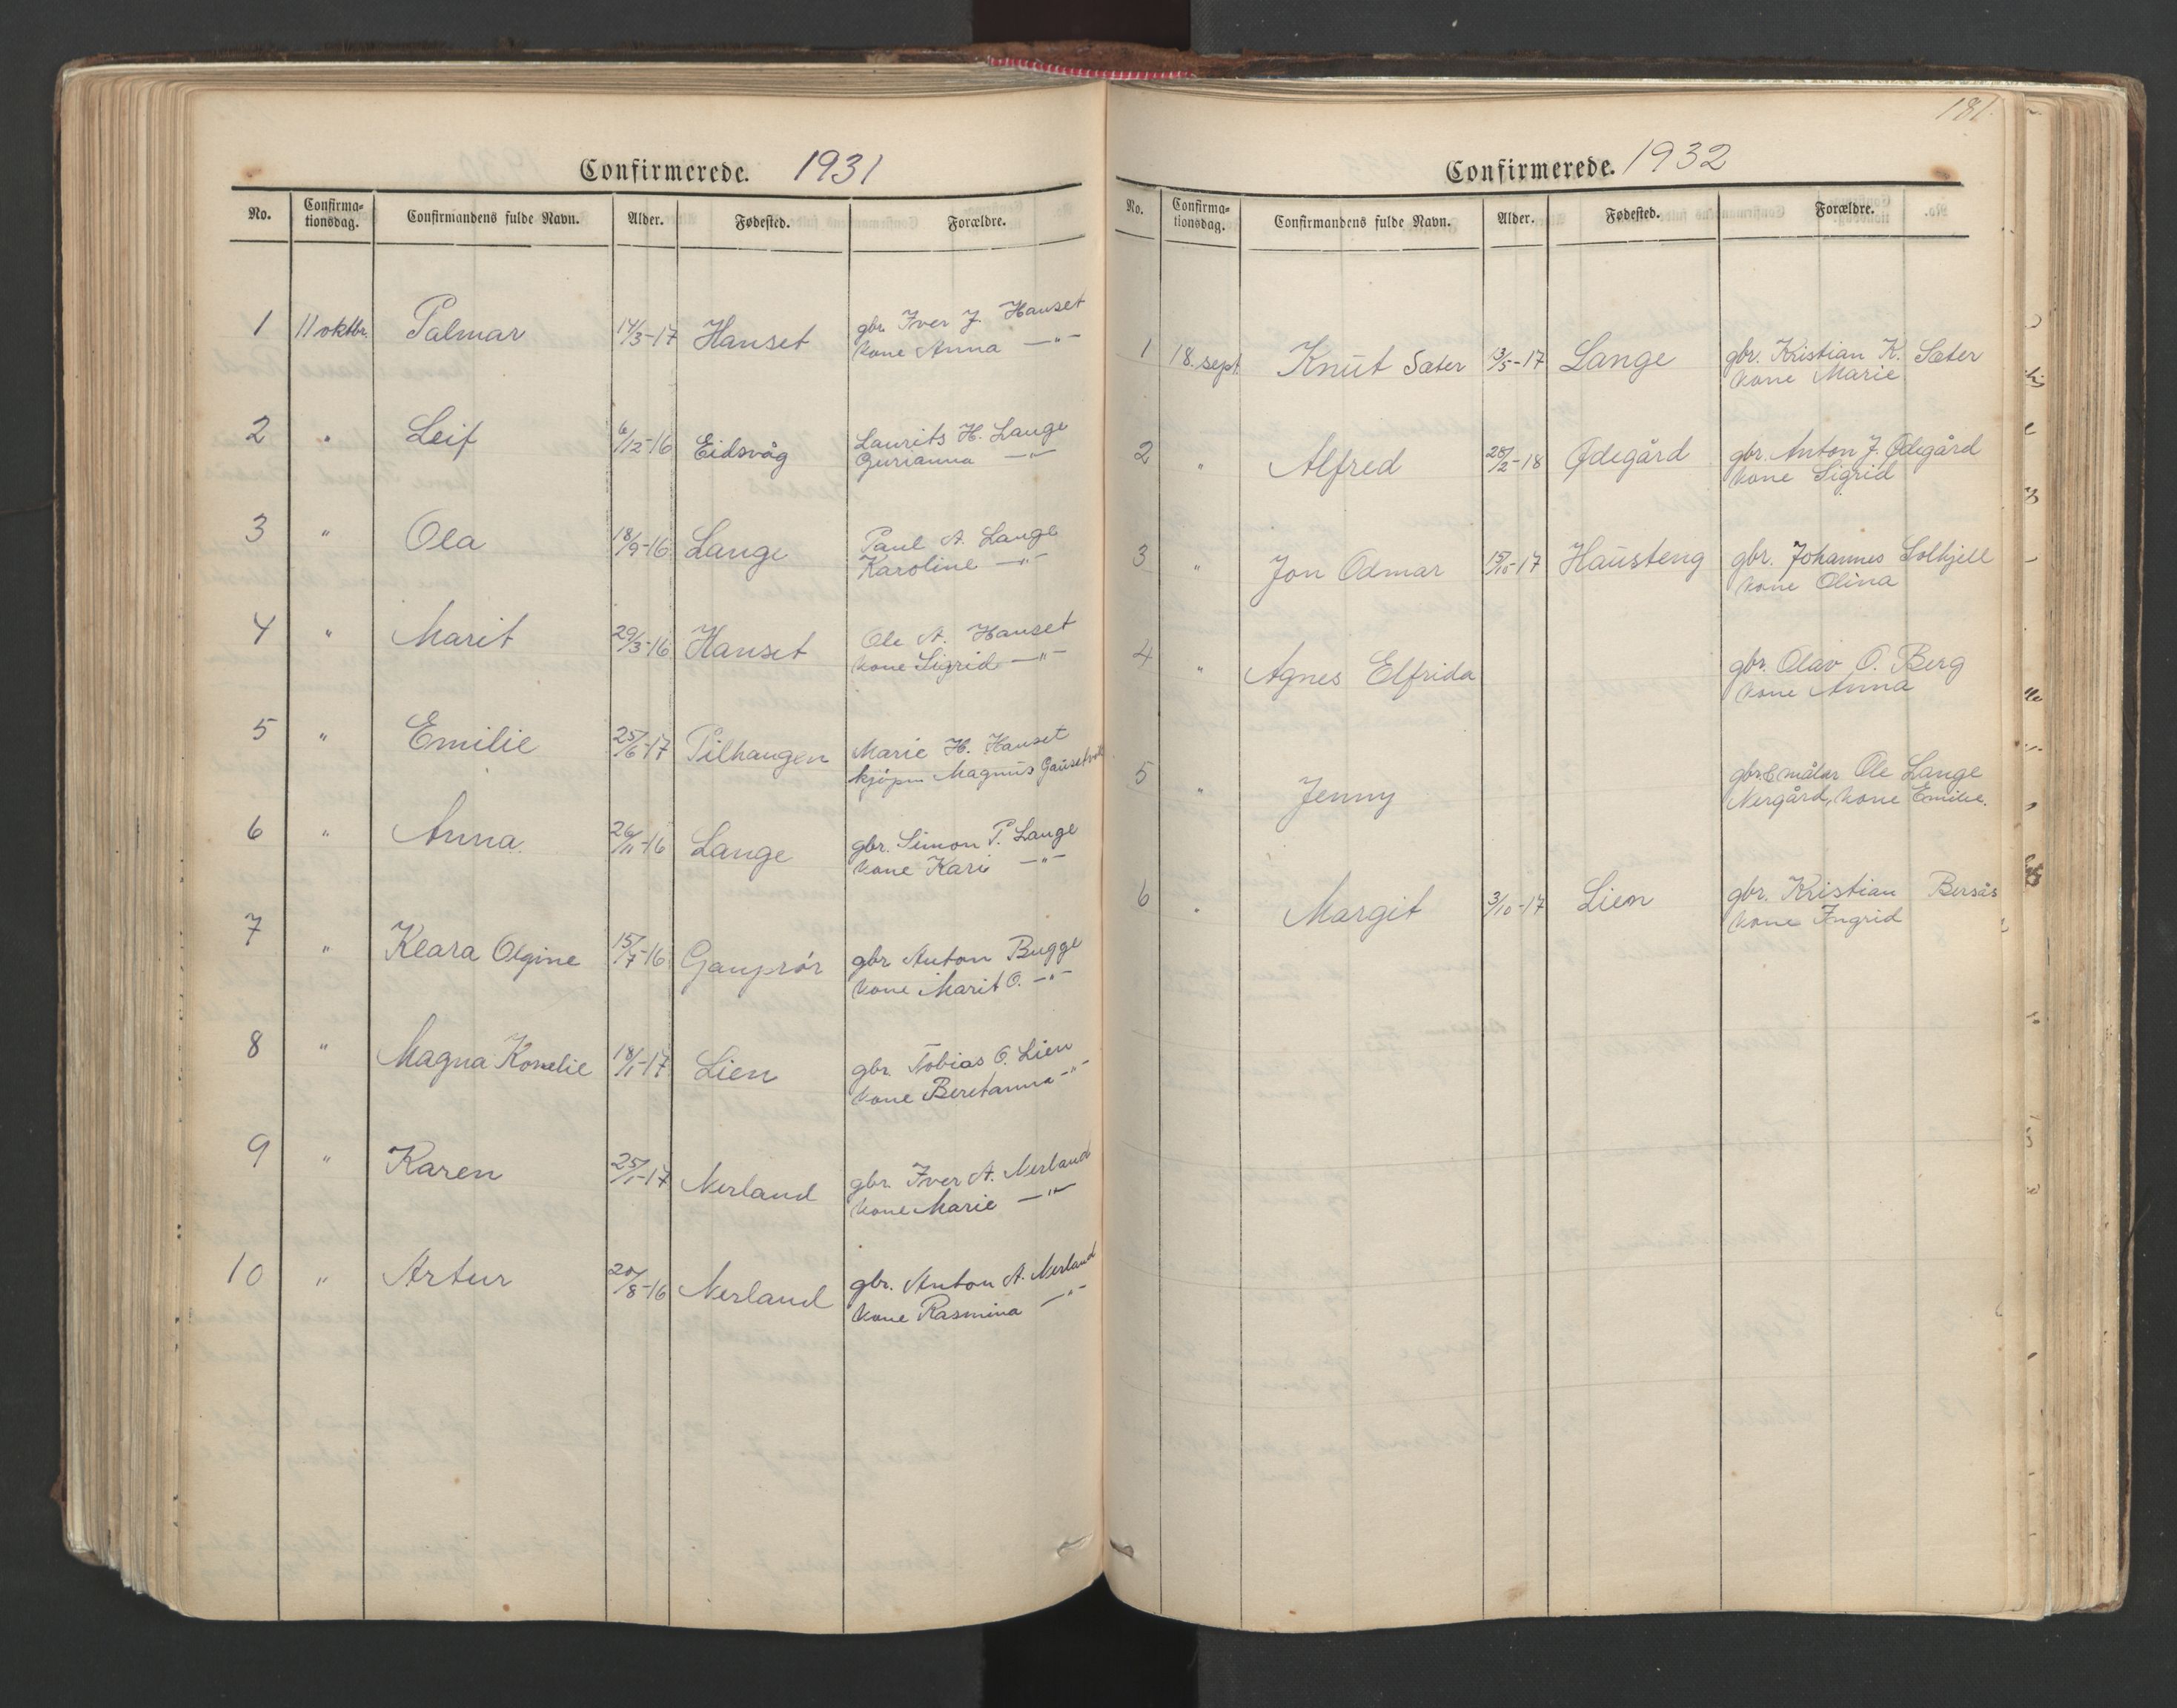 Confirmerede. 1931
No. Confirma-tionsdag. Confirmandens fulde Navn. Alder. Fødested. Forældre.
1 11 oktbr. Palmar 14/3-17 Hanset gbr. Iver J. Hanset
kone Anna —"—
2 " Leif 6/12-16 Eidsvåg Laurits H. Lange
Gurianna —"—
3 " Ola 18/9-16 Lange Paul A. Lange
Karoline —"—
4 " Marit 29/3-16 Hanset Ole A. Hanset
kone Sigrid —"—
5 " Emilie 25/6-17 Pilhaugen Marie H. Hanset
kjøpm Magnus
6 " Anna 26/11-16 Lange gbr. Simon P. Lange
kone Kari —"—
7 " Klara Olgine 15/7-16 gbr Anton Bugge
kone Marit O. —"—
8 " Magna Kornelie 18/1-17 Lien gbr. Tobias O. Lien
kone Beretanna —"—
9 " Karen 25/1-17 Nerland gbr. Iver A. Nerland
kone Marie —"—
10 " Artur 20/8-16 Nerland gbr. Anton A. Nerland
kone Rasmina —"—
181.
Confirmerede. 1932
No. Confirma-tionsdag. Confirmandens fulde Navn. Alder. Fødested. Forældre.
1 18. sept. Knut Sæter 13/5-17 Lange gbr. Kristian K. Sæter
kone Marie
2 " Alfred 28/2-18 Ødegård gbr. Anton J. Ødegård
kone Sigrid
3 " Jon Odmar 15/10-17 Hausteng gbr. Johannes Solhjell
kone Olina
4 " Agnes Elfrida gbr. Olav O. Berg
kone Anna
5 " Jenny gbr. & målar Ole Lange
Nergård, kone Emilie.
6 " Margit 3/10-17 Lien gbr. Kristian Bersås
kone Ingrid